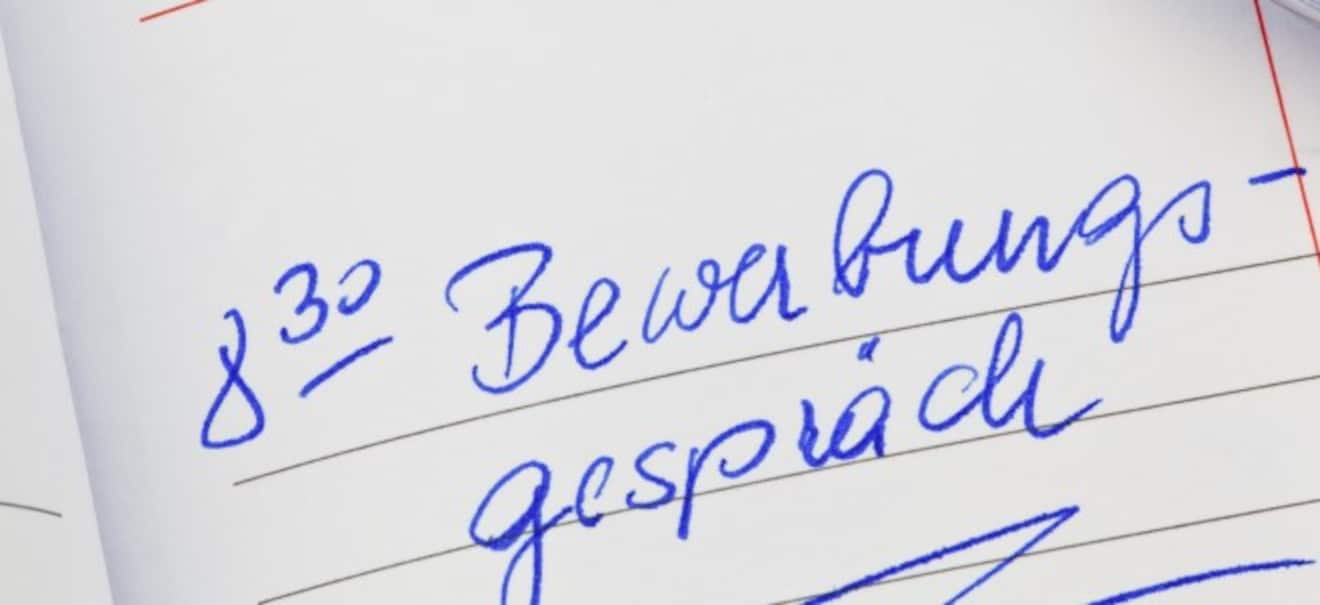 8³⁰ Bewerbungs-
gespräch